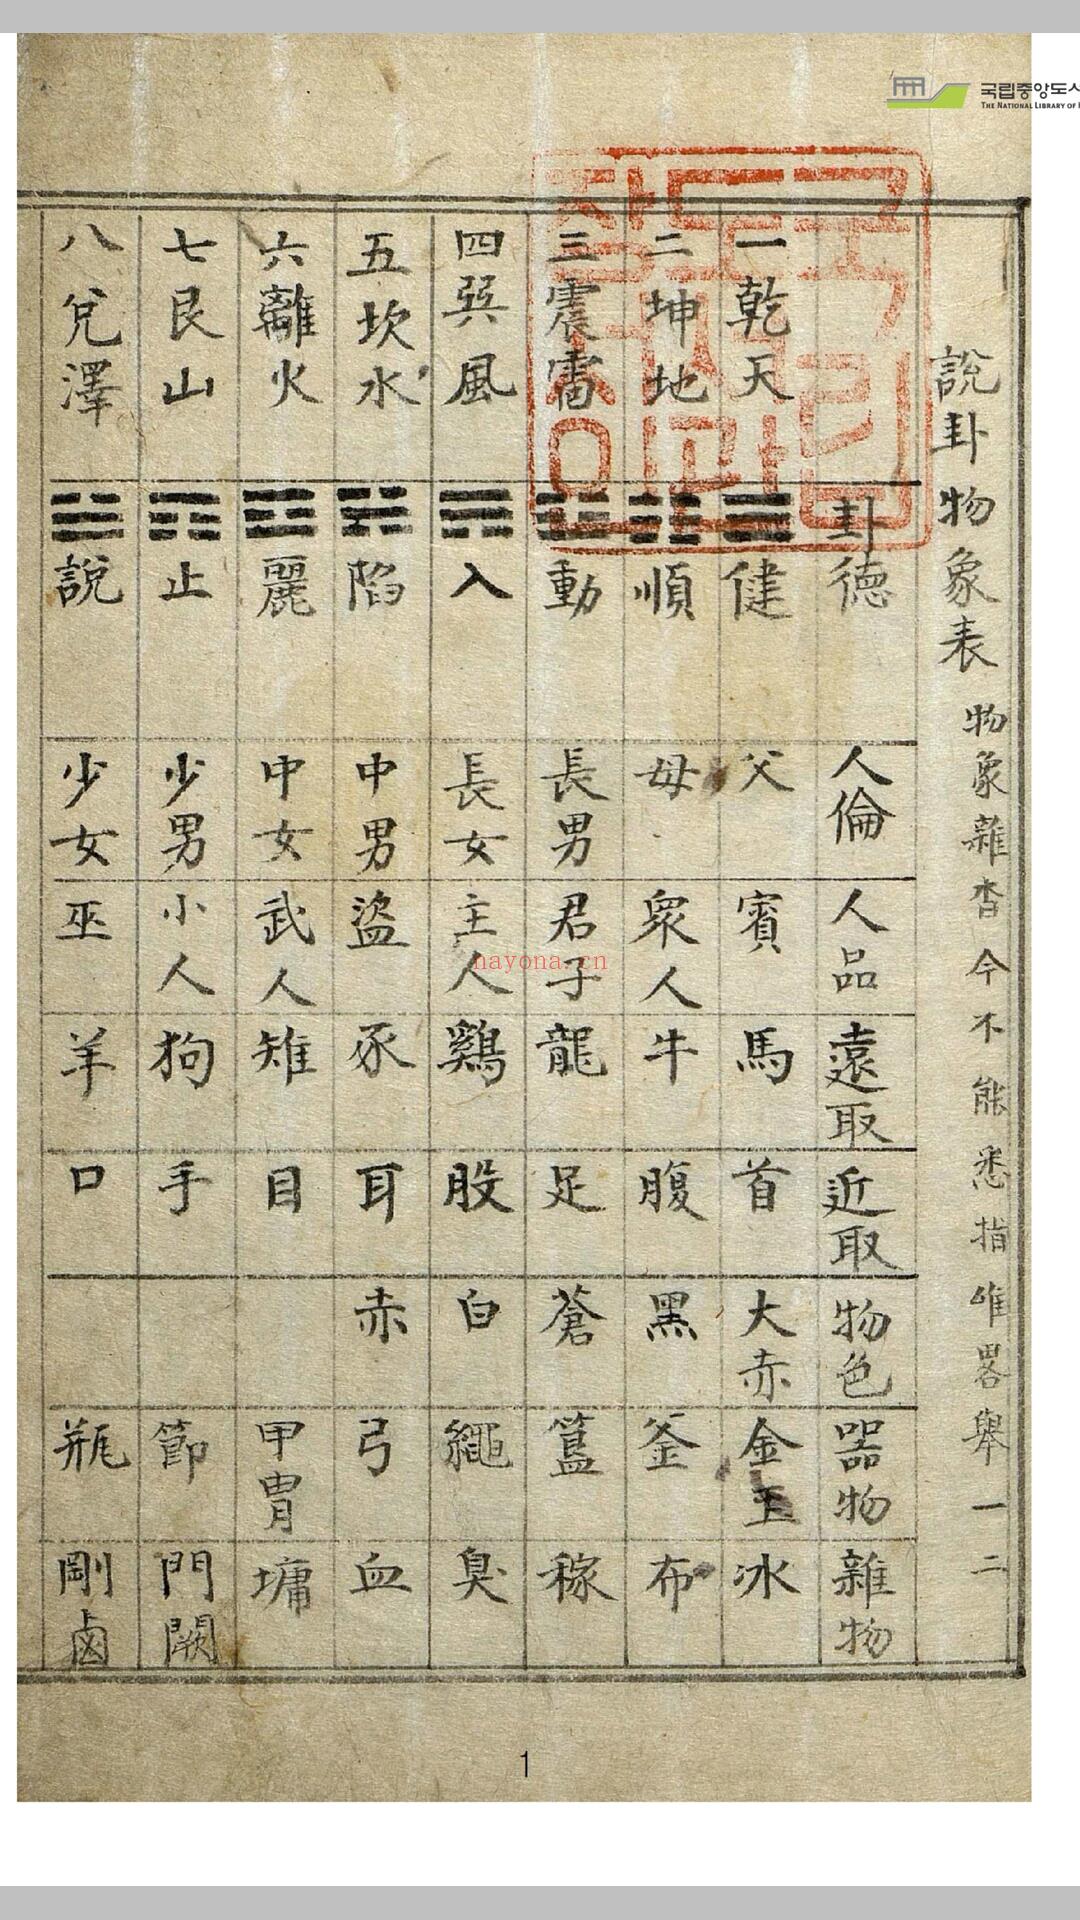 국립중앙도서
THE NATIONAL LIBRARY OF
說卦物象表 物象雜沓今不能悉指唯畧舉一二
卦德 人倫 人品 遠取 近取 物色 器物 雜物
一乾天 ☰ 健 父 賓 馬 首 大赤 金玉 冰
二坤地 ☷ 順 母 衆人 牛 腹 黑 釜 布
三震雷 ☳ 動 長男 君子 龍 足 蒼 簋 稼
四巽風 ☴ 入 長女 主人 鷄 股 白 繩 臭
五坎水 ☵ 陷 中男 盜 豕 耳 赤 弓 血
六離火 ☲ 麗 中女 武人 雉 目 甲冑 墉
七艮山 ☶ 止 少男 小人 狗 手 節 門闕
八兌澤 ☱ 說 少女 巫 羊 口 瓶 剛鹵
nayona.cn
1